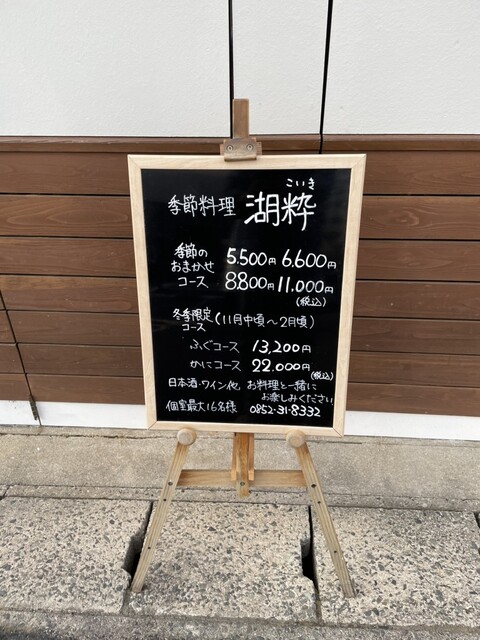 こいき
季節料理 湖粋
季節の
おまかせ
コース
5.500円 6.600円
8.800円 11.000円
(税込)
冬季限定
コース
(11月中頃〜2月頃)
ふぐコース 13,200円
かにコース 22.000円
(税込)
日本酒・ワイン他 お料理と一緒に
お楽しみください
個室最大16名様 0852-31-8332